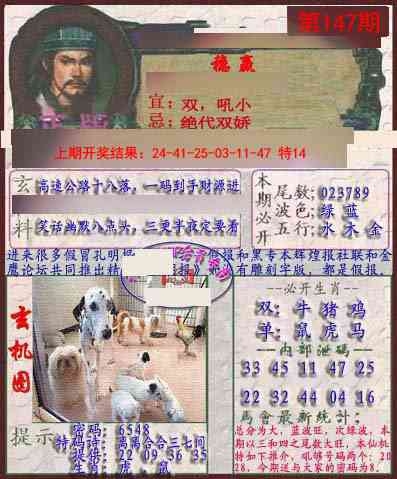 第147期
稳 赢
宜：双，吼小
忌：绝代双娇
上期开奖结果：24-41-25-03-11-47 特14
玄 高速公路十八落，一码到手财源进
料 笑话幽默八点兴，三更半夜定要看
本期必开
尾数；023789
波色；绿 蓝
五行；水 木 金
进来很多假冒孔明
报和黑专本辉煌报社联和金
鹰论坛共同推出精
有雕刻字版，都是假报，
玄机图
必开生肖
双：牛 猪 鸡
单：鼠 虎 马
内部泄码
33 45 11 47 25
22 32 44 04 16
马會最新统计：
总分为大，蓝波旺，次绿波，本
期以三和四之尾数大旺，本仙机
特如下推介，吼够号码两个：20
28，今期送与大家的密码为8．
提示
密码：6548
特码诗：离离合合三七间
提供：22 09 36 35
生肖：虎，鼠